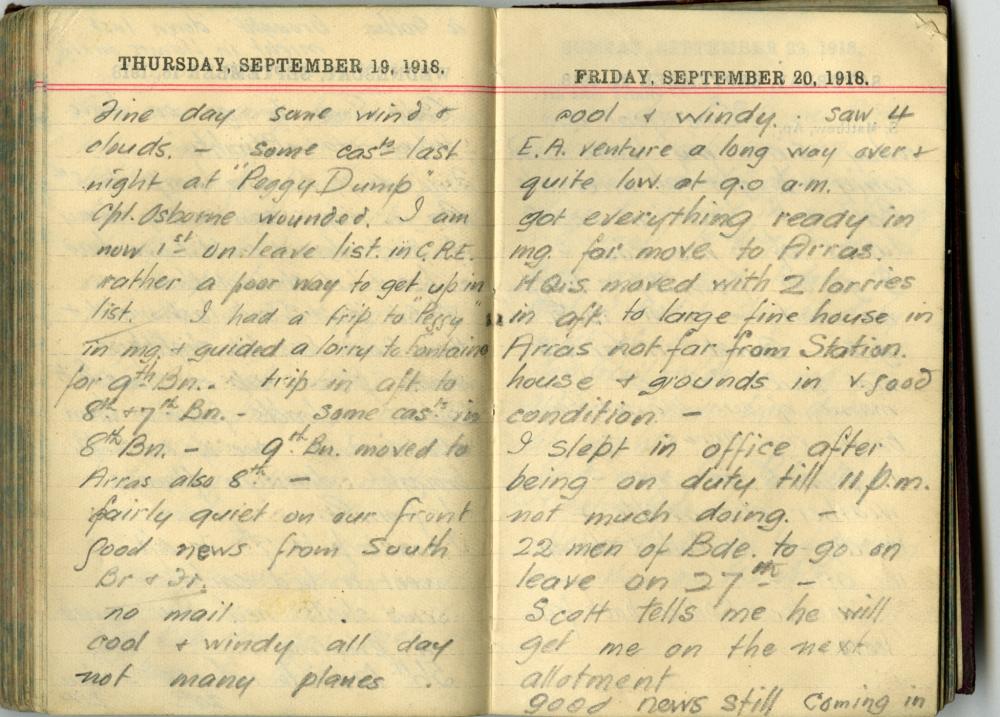 THURSDAY, SEPTEMBER 19, 1918.
Fine day some wind &
clouds. — some casts last
night at "Peggy Dump"
Cpl. Osborne wounded. I am
now 1st on leave list. in C.R.E.
rather a poor way to get up in
list. I had a trip to "Peggy"
in mg. & guided a lorry to
for 9th Bn.. trip in aft. to
8th & 7th Bn. - some casts in
8th Bn. - 9th Bn. moved to
Arras also 8th. —
fairly quiet on our front
good news from South
Br & Fr.
no mail.
cool & windy all day
not many planes.
FRIDAY, SEPTEMBER 20, 1918.
cool & windy. saw 4
E.A. venture a long way over &
quite low at 9.0 a.m.
got everything ready in
mg. for move to Arras.
HQrs. moved with 2 lorries
in aft. to large fine house in
Arras not far from Station.
house & grounds in v. good
condition. —
I slept in office after
being on duty till 11 p.m.
not much doing. —
22 men of Bde. to go on
leave on 27th —
Scott tells me he will
get me on the next
allotment
good news still coming in